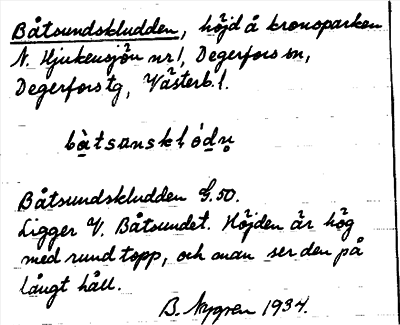 Båtsundskludden, höjd å kronoparken
N. Hjukensjön nr 1, Degerfors sn,
Degerfors tg, Västerb. l.
bàtsansklódṇ
Båtsundskludden G.50.
Ligger V. Båtsundet. Höjden är hög
med rund topp, och man ser den på
långt håll.
B. Nygren 1934.